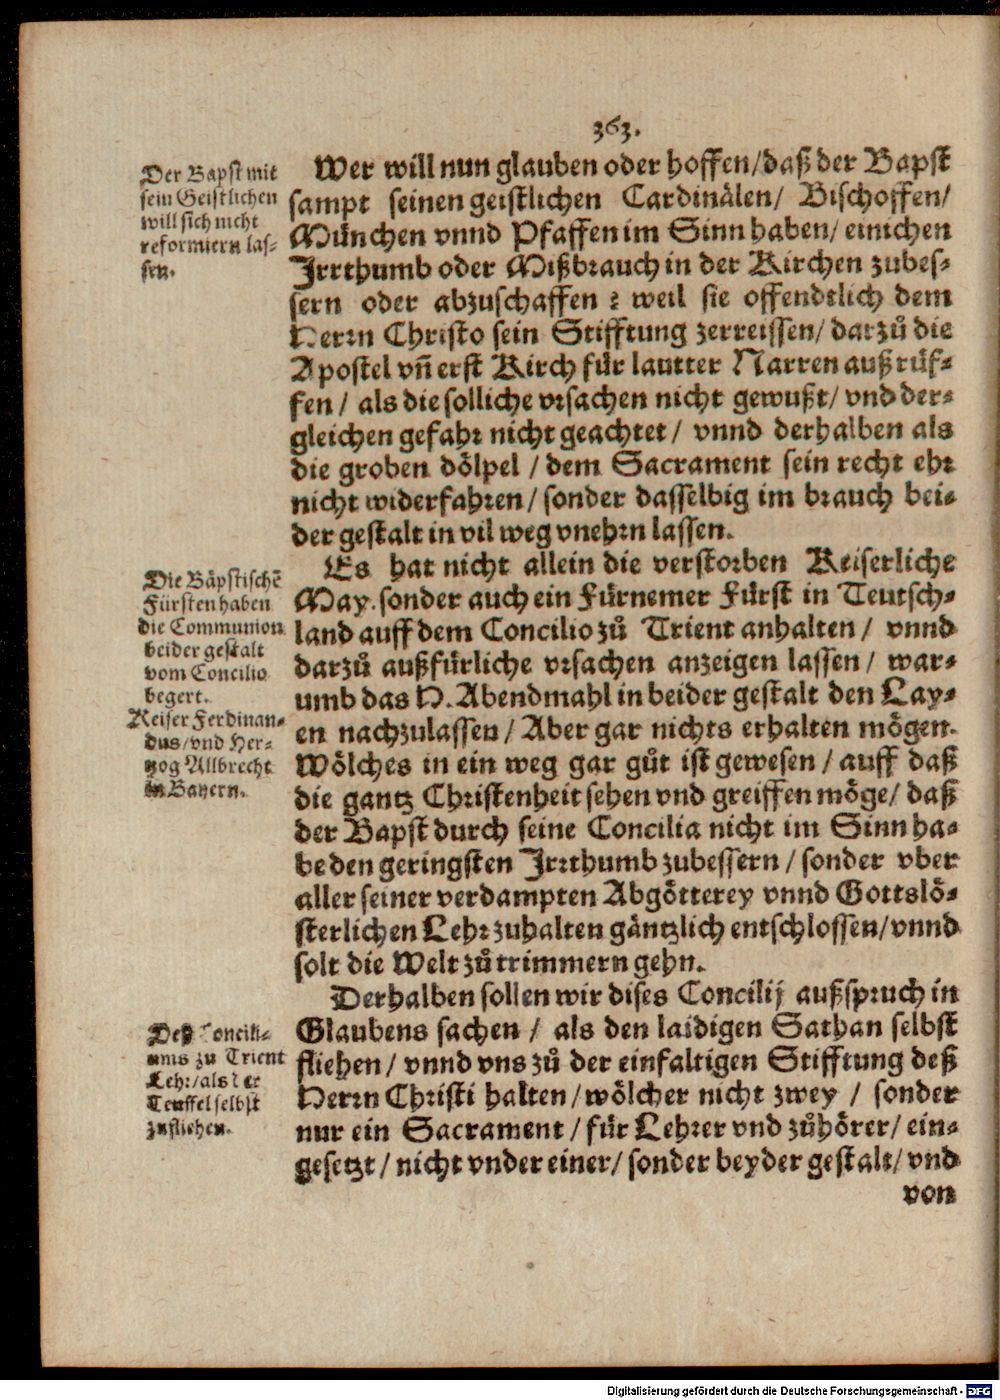 363.
Der Bapst mit
sein Geistlichen
will sich nicht
reformiern las-
sen.
Wer will nun glauben oder hoffen/ daß der Bapst
sampt seinen geistlichen Cardinälen/ Bischoffen/
München vnnd Pfaffen im Sinn haben/ einichen
Irrthumb oder Mißbrauch in der Kirchen zubes-
sern oder abzuschaffen? weil sie offendtlich dem
Herrn Christo sein Stifftung zerreissen/ darzů die
Apostel vñ erst Kirch für lautter Narren außrüf-
fen/ als die solliche vrsachen nicht gewußt/ vnd der-
gleichen gefahr nicht geachtet/ vnnd derhalben als
die groben dölpel/ dem Sacrament sein recht ehr
nicht widerfahren/ sonder dasselbig im brauch bei-
der gestalt in vil weg vnehrn lassen.
Die Bäpstischẽ
Fürsten haben
die Communion
beider gestalt
vom Concilio
begert.
Keiser Ferdinan-
dus/ vnd Her-
tzog Allbrecht
in Bayern.
Es hat nicht allein die verstorben Keiserliche
May. sonder auch ein Fürnemer Fürst in Teutsch-
land auff dem Concilio zů Trient anhalten/ vnnd
darzů außfürliche vrsachen anzeigen lassen/ war-
umb das H. Abendmahl in beider gestalt den Lay-
en nachzulassen/ Aber gar nichts erhalten mögen.
Wölches in ein weg gar gůt ist gewesen/ auff daß
die gantz Christenheit sehen vnd greiffen möge/ daß
der Bapst durch seine Concilia nicht im Sinn ha-
be den geringsten Irrthumb zubessern/ sonder vber
aller seiner verdampten Abgötterey vnnd Gottslö-
sterlichen Lehr zuhalten gäntzlich entschlossen/ vnnd
solt die Welt zů trimmern gehn.
Deß Concili-
ums zu Trient
Lehr/ als der
Teuffel selbst
zufliehen.
Derhalben sollen wir dises Concilij außspruch in
Glaubens sachen/ als den laidigen Sathan selbst
fliehen/ vnnd vns zů der einfaltigen Stifftung deß
Herrn Christi halten/ wölcher nicht zwey/ sonder
nur ein Sacrament/ für Lehrer vnd zůhörer/ ein-
gesetzt/ nicht vnder einer/ sonder beyder gestalt/ vnd
von
Digitalisierung gefördert durch die Deutsche Forschungsgemeinschaft - DFG